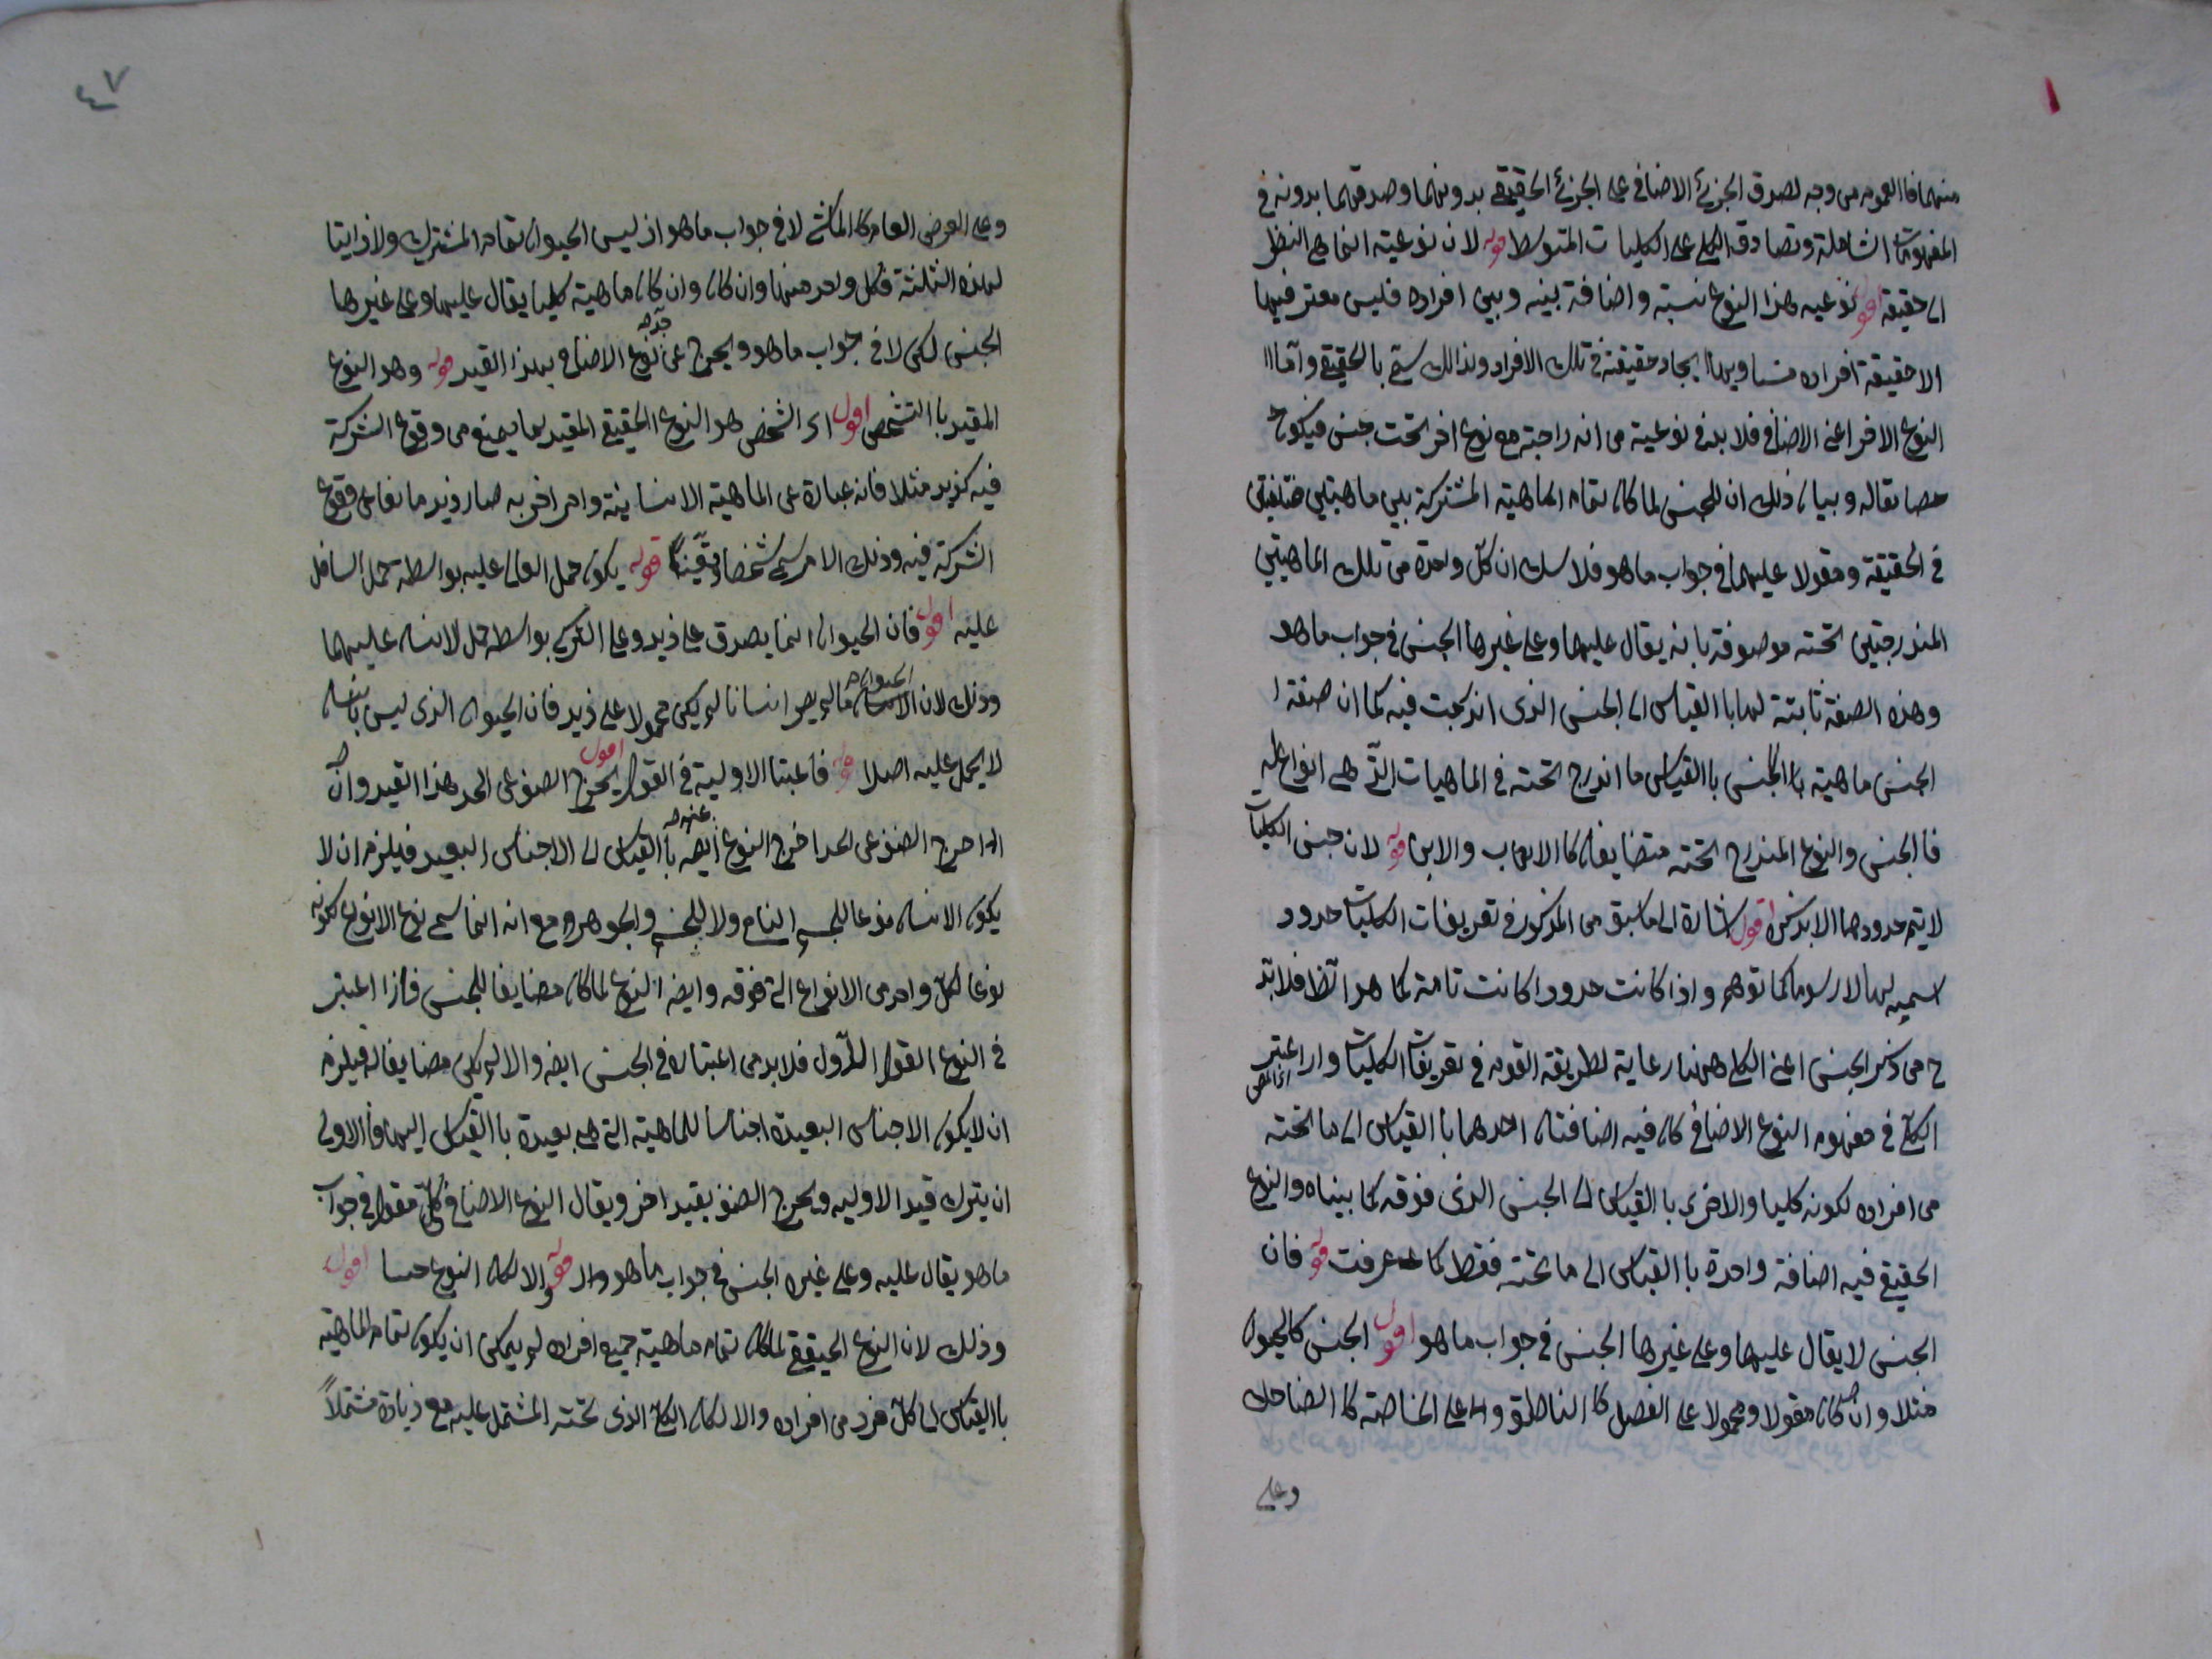 ١
منهما فا العموم من وجه لصدق الجزئ الاضافى على الجزئ الحقيقے بدونهما وصدقهما بدونه فى
المفهومات الشاملة وتصادق الكل على الكليات المتوسط قوله لان نوعيته انما هى النظر
الى حقيقته اقول نوعيه هذا النوع نسبة واضافة بينه وبين افراده فليس معتبر فيها
الا حقيقة افراده حقيقته فى تلك الافراد ولذالك سمّے بالحقيقے وآما
النوع الاخر اعنے الاضافى فلابد فى نوعيته من اندراجه مع نوع اخر تحت جنس فيكون
مضايفاله وبيان ذلك ان للجنس لما كان تمام الماهيته المشتركة بين ماهيتين مختلفتين
فى الحقيقة ومقولا عليهما فى جواب ما هو فلاشك ان كلّ واحدة من تلك الماهيتين
المندرجتين تحته موصوفة بانه يقال عليها وعلى غيرها الجنس فى جواب ما هو
وهذه الصفة ثابتة لها با القياس الى الجنس الذى اندرجت فيه كما ان صفة
الجنس ماهية با القياس ما اندرج تحته فى الماهيات التّے هى انواع له
فا الجنس والنوع المندرج تحته متضايفان كا الاب والابن قوله لان جنس الكليات
لايتم حدودهما الا بذكره اقول اشارة الى ما سبق من المذكور فى تعريفات الكليات حدود
اسميه لها لا رسوما كما توهم واذا كانت حدودا كانت تامة كما هو فلابد
ح من ذكر الجنس اعنى الكلى ههنا رعاية لطريقة القوم فى تعريفات الكليات واذا اعتبر
الكلّے فى مفهوم النوع الاضافى كان فيه اضافتان احدهما با القياس الى ما تحته
من افراده لكونه كليا والاخرى با القياس الى الجنس الذى فوقه كما بيناه والنوع
الحقيقے فيه اضافة واحدة با القياس الى ما تحته فقط كما عرفت قوله فان
الجنس لايقال عليها وعلى غيرها الجنس فى جواب ما هو اقول الجنس كالحيوان
مثلا وان كان مقولا ومحمولا على الفصل كا الناطق وعلى الخاصة كا الضاحك
وعلى
٤٧
وعلى العرض العام كا الماشے لا فى جواب ما هو اذ ليس الحيوان تمام المشترك ولا ذاتيا
لهذه الثلثة فكل واحد منها وان كان وان كان ماهية كليا يقال عليها وعلى غيرها
الجنس لكن لا فى جواب ما هو ويخرج عن نوع الاضافى بهذا القيد قوله وهو النوع
المقيد با التشخص اقول اى الشخص هو النوع الحقيقے المقيد بما يمنع من وقوع الشركة
فيه كزيد مثلا فانه عبارة عن الماهية الانسانية وامر اخر به صار زيد مانعا عن وقوع
الشركة فيه وذلك الامر سمى تشخصا وتعيّنا قوله يكون حمل العالى عليه بواسطه حمل السافل
عليه اقول فان الحيوان انما يصدق على زيد وعلى التركى بواسطه حمل الانسان عليهما
وذلك لان الحيوان مالم يصر انسانا لم يكن محمولا على زيد فان الحيوان الذى ليس بانسان
لا يحمل عليه اصلا قوله فاعتبار الاولية فى القول اقول يخرج الصنف عن الحد هذا القيد وان
اخرج الصنف عن الحد اخرج النوع عنه ايضه با القياس الى الاجناس البعيد فيلزم ان لا
يكون الانسان نوعا للجسم النامى ولا للجسم والجوهر مع انه انما سمى نوع الانواع لكونه
نوعا لكلّ واحد من الانواع التے فوقه وايضه النوع لما كان مضايفا للجنس فاذا اعتبر
فى النوع القول الاول فلابد من اعتباره فى الجنس ايضه والا لم يكن مضايفا له فيلزم
ان لايكون الاجناس البعيدة اجناسا للماهية التى هى بعيدة با القياس اليها فا الاولى
ان يترك قيد الاوليه ويخرج الصنف بقيد اخر ويقال النوع الاضافى كلّے مقول فى جواب
ما هو يقال عليه وعلى غيره الجنس فى جواب ما هو قوله والا لكان النوع جنسا اقول
وذلك لان النوع الحقيقے لما كان تمام ماهية جميع افراده لم يمكن ان يكون تمام الماهية
با القياس الى كلّ فرد من افراده والا لكان الكلے الذى تحته المشتمل عليه مع زيادة مشتملاً